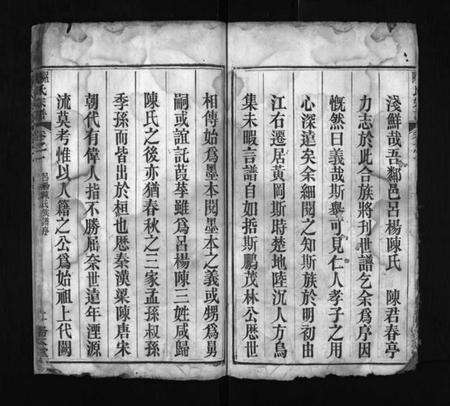 淺鮮哉吾鄰邑呂楊陳氏 陳君春亭
力志於此合族將刊世譜乞余爲序因
慨然曰義哉斯舉可見仁人孝子之用
心深遠矣余細閱之知斯族於明初由
江右遷居黃岡斯時楚地陸沉人方鳥
集未暇言譜自如捂斯鵬茂林公歷世
相傳始爲墨本閱墨本之義或甥爲舅
嗣或誼託葭莩雖爲呂楊陳三姓咸歸
陳氏之後亦猶春秋之三家孟孫叔孫
季孫而皆出於桓也歷秦漢梁陳唐宋
朝代有偉人指不勝屈奈世遠年湮源
流莫考惟以人籍之公爲始祖上代闕